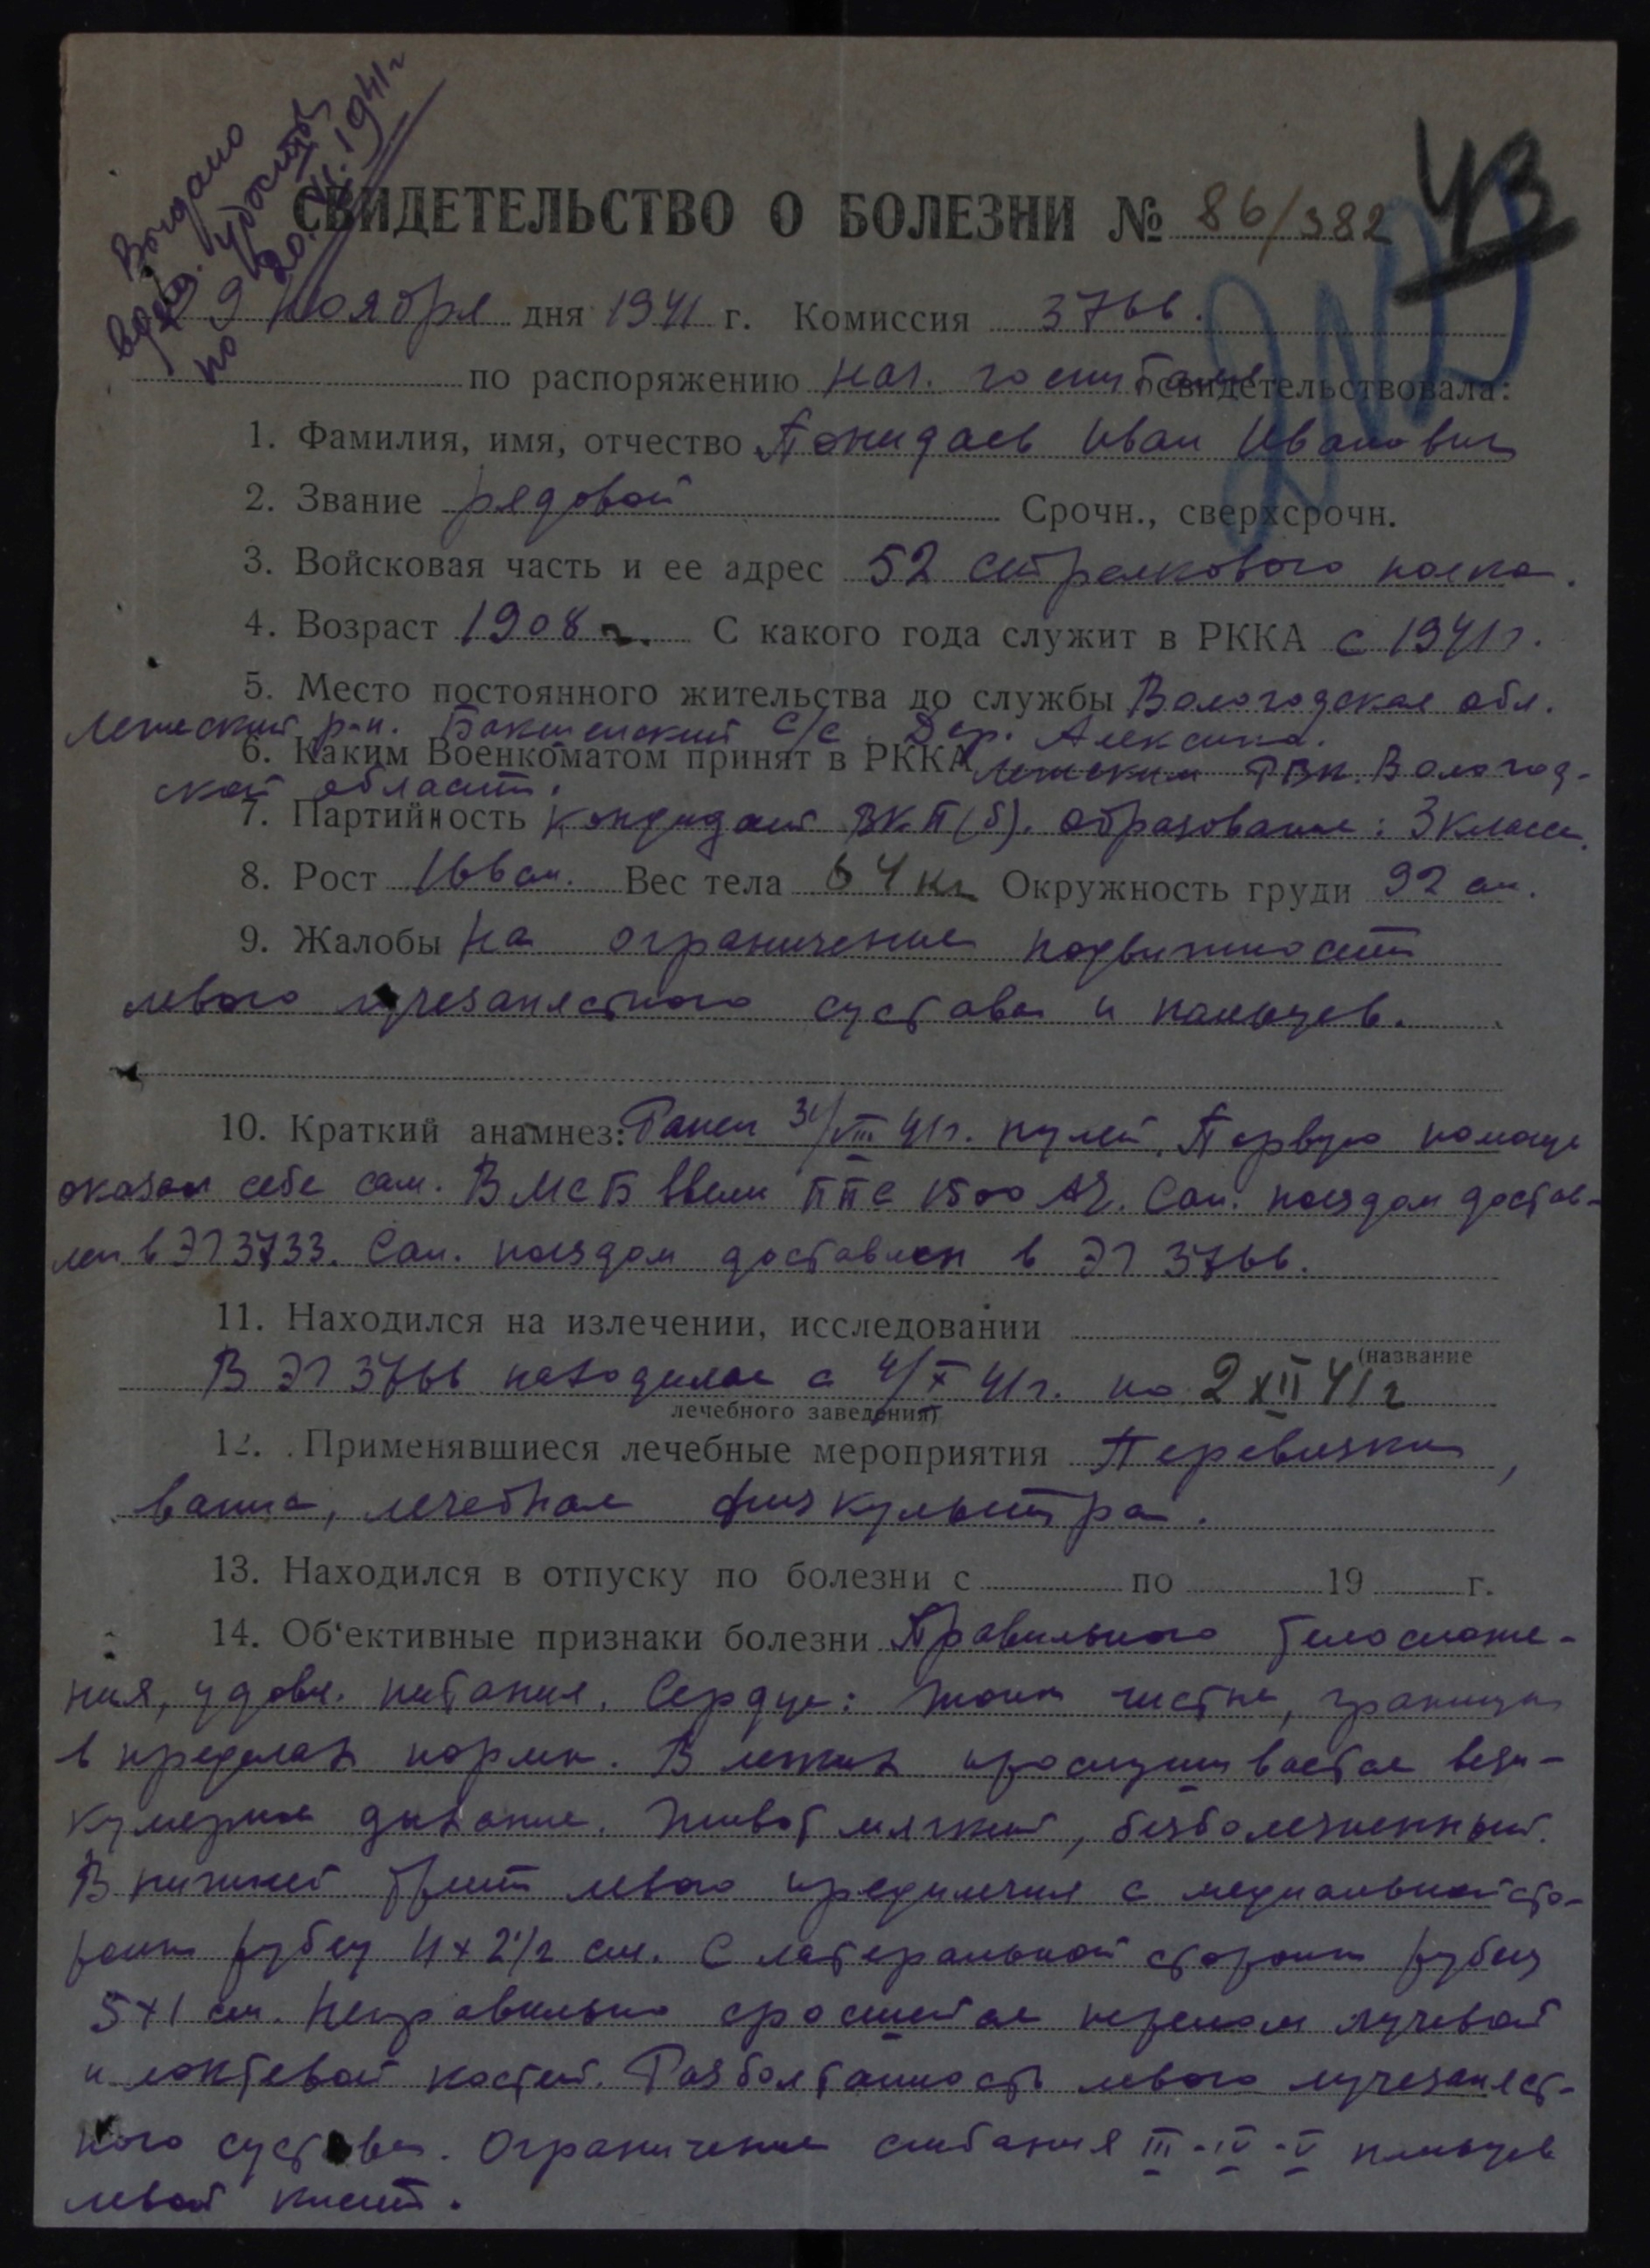 Выдано
врем. удостов.
по 20.XI.1941г
43
СВИДЕТЕЛЬСТВО О БОЛЕЗНИ № 86/382
9 Ноября дня 1941 г. Комиссия 3766.
по распоряжению нач. госпиталя освидетельствовала:
1. Фамилия, имя, отчество Иван Иванович
2. Звание рядовой Срочн., сверхсрочн.
3. Войсковая часть и ее адрес 52 стрелкового полка.
4. Возраст 1908 г. С какого года служит в РККА с 1941 г.
5. Место постоянного жительства до службы Вологодская обл.
Лежский р-н. с/с. Дер. Алексино.
6. Каким Военкоматом принят в РККА Лежским РВК. Вологод-
ской области.
7. Партийность кандидат ВКП(б). образование: 3 класса.
8. Рост 166 см. Вес тела 64 кг Окружность груди 92 см.
9. Жалобы На ограничение подвижности
левого лучезапястного сустава и пальцев.
10. Краткий анамнез: Ранен 31/VIII 41г. пулей. Первую помощь
оказал себе сам. В МСБ ввели ППС 1500 АЕ. Сан. поездом достав-
лен в ЭГ 3733. Сан. поездом доставлен в ЭГ 3766.
11. Находился на излечении, исследовании
(название
В ЭГ 3766 находился с 4/X 41г. по 2 XII 41 г
лечебного заведения)
12. Применявшиеся лечебные мероприятия Перевязки,
ванна, лечебная физкультура.
13. Находился в отпуску по болезни с по 19 г.
14. Об‘ективные признаки болезни Правильного телосложе-
ния, удовл. питания. Сердце: тоны чисты, границы
в пределах нормы. В легких прослушивается вези-
кулярное дыхание. Живот мягкий, безболезненный.
В нижней трети левого предплечия с медиальной сто-
роны рубец 4 х 2 1/2 см. С латеральной стороны рубец
5х1 см. Неправильно сросшийся перелом лучевой
и локтевой костей. Разболтанность левого лучезапяст-
ного сустава. Ограничение сгибания III-IV-V пальцев
левой кисти.